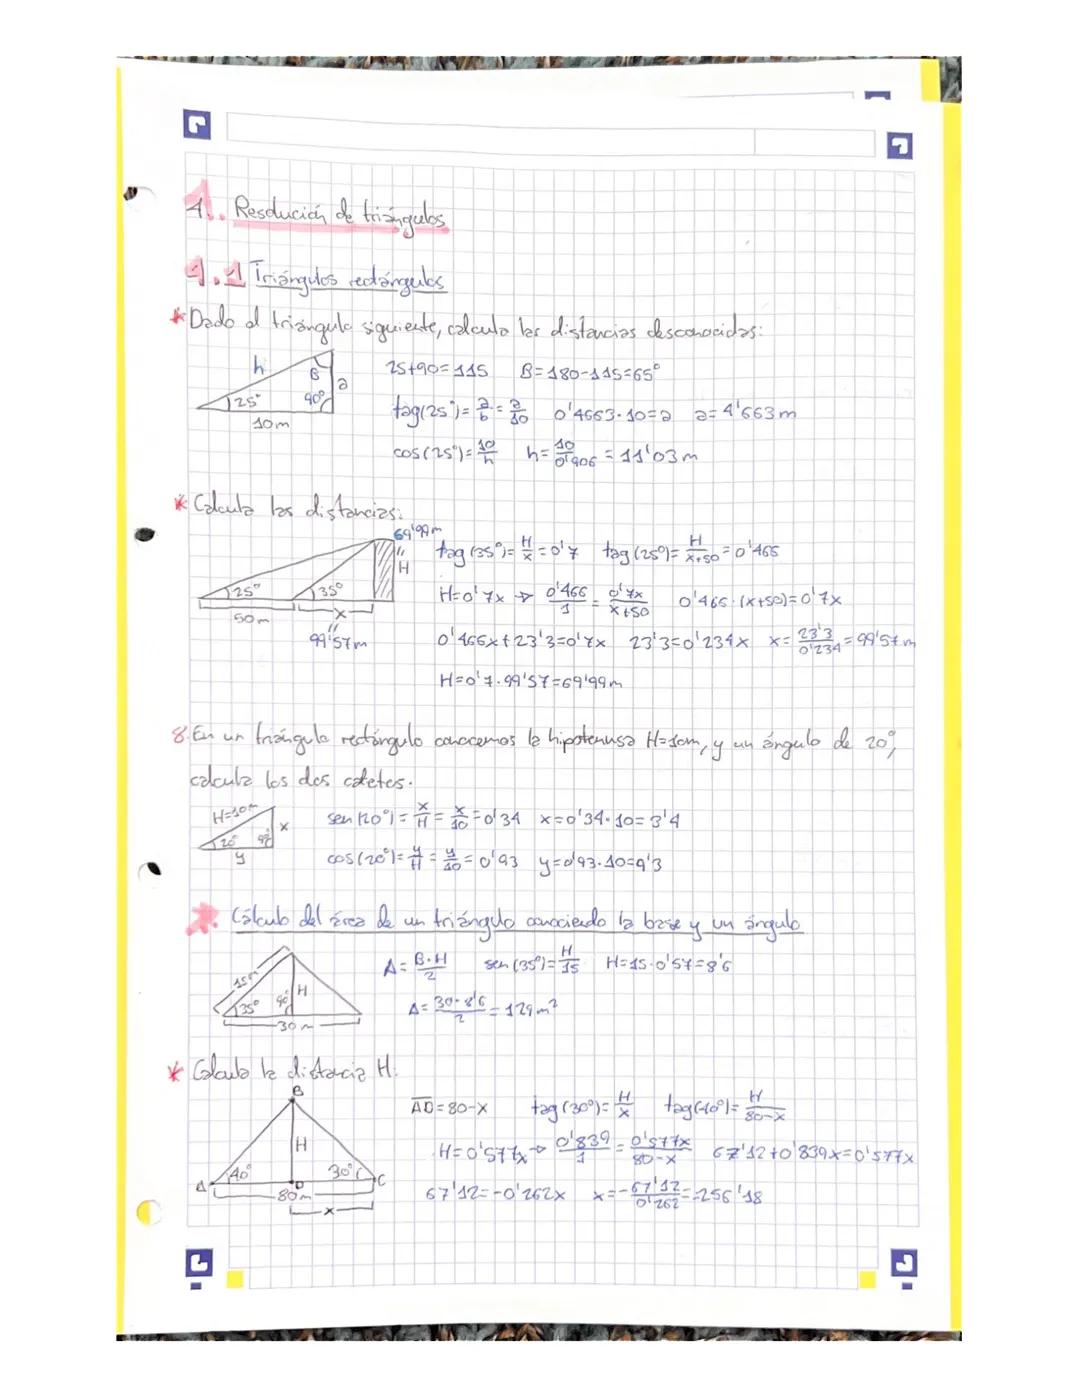 1. Resolución de triángulos
1.1 Triángulos rectángulos
* Dado el triángulo siguiente, calcula las distancias desconocidas:
h B a 25° 90° 10m
25+90=115 B=180-115=65°
tag(25°)=a/b=a/10 0'4663·10=a a=4'663m
cos(25°)=10/h h=10/0'906=11'03m
* Calcula las distancias:
69'99m
H
25° 35°
50m x
99'57m
tag(35°)=H/x=0'7 tag(25°)=H/x+50=0'466
H=0'7x → 0'466/1=0'7x/x+50 0'466·(x+50)=0'7x
0'466x+23'3=0'7x 23'3=0'234x x=23'3/0'234=99'57m
H=0'7·99'57=69'99m
8. En un triángulo rectángulo conocemos la hipotenusa H=10m, y un ángulo de 20°,
calcula los dos catetos.
H=10m x 20° 90° y
sen(20°)=x/H=x/10=0'34 x=0'34·10=3'4
cos(20°)=y/H=y/10=0'93 y=0'93·10=9'3
* Cálculo del área de un triángulo conociendo la base y un ángulo
15m H 35° 90° 30m
A=B·H/2 sen(35°)=H/15 H=15·0'57=8'6
A=30·8'6/2=129m²
* Calcula la distancia H:
B
H
A 40° D 30° C
80m
x
AD=80-x tag(30°)=H/x tag(40°)=H/80-x
H=0'577x → 0'839/1=0'577x/80-x 67'12+0'839x=0'577x
67'12=-0'262x x=-67'12/0'262=-256'18